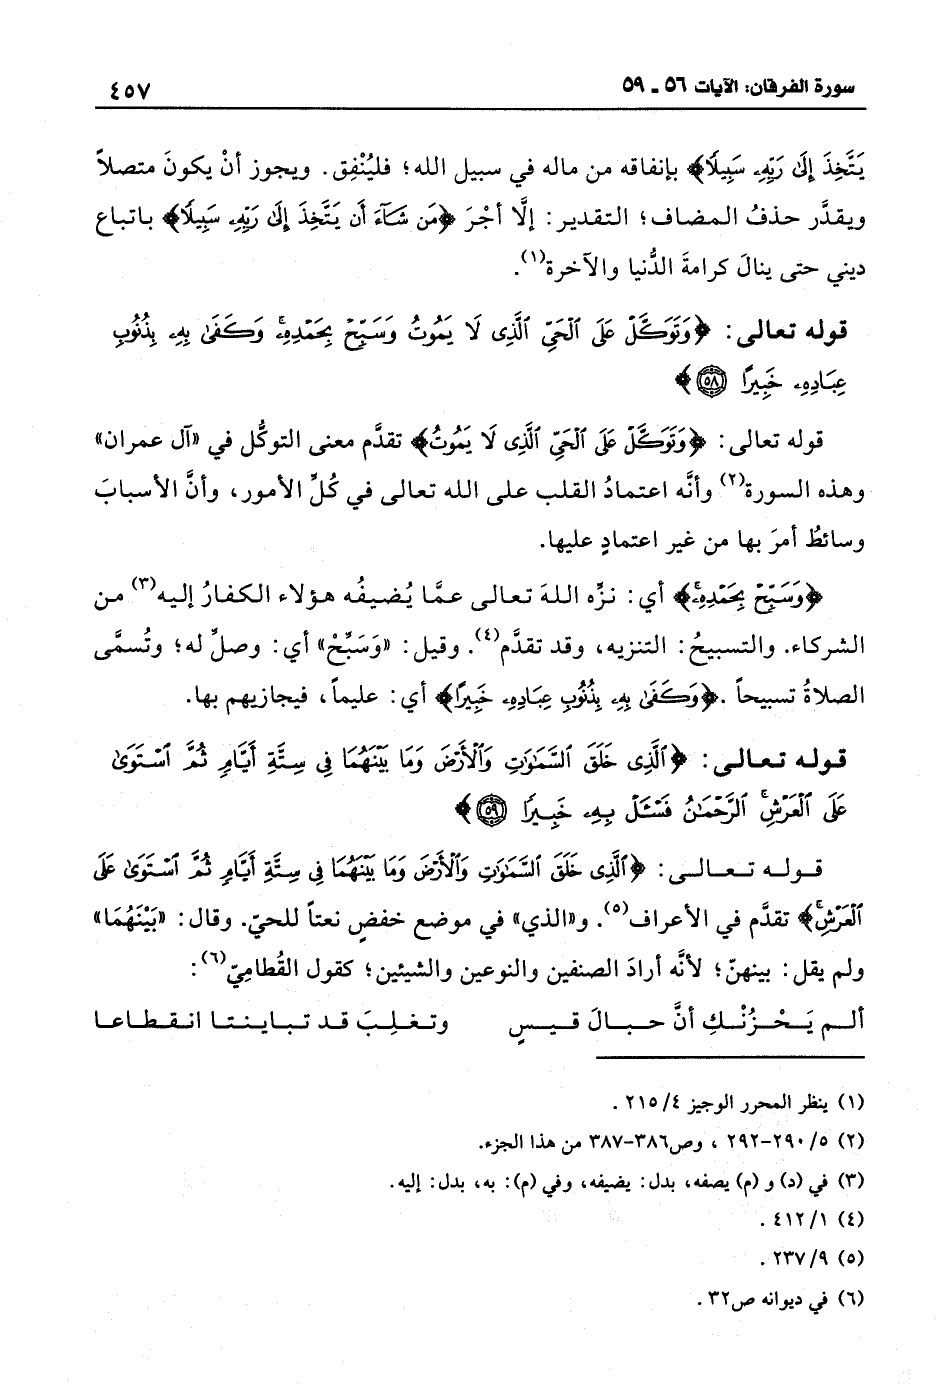 سورة الفرقان: الآيات ٥٦ ـ ٥٩ ٤٥٧
يَتَّخِذَ إِلَىٰ رَبِّهِۦ سَبِيلًا﴾ بإنفاقه من ماله في سبيل الله؛ فليُنْفِق. ويجوز أنْ يكونَ متصلاً
ويقدَّر حذفُ المضاف؛ التقدير: إلَّا أجْرَ ﴿مَن شَآءَ أَن يَتَّخِذَ إِلَىٰ رَبِّهِۦ سَبِيلًا﴾ باتباع
ديني حتى ينالَ كرامةَ الدُّنيا والآخرة(١).
قوله تعالى: ﴿وَتَوَكَّلْ عَلَى ٱلْحَىِّ ٱلَّذِى لَا يَمُوتُ وَسَبِّحْ بِحَمْدِهِۦۚ وَكَفَىٰ بِهِۦ بِذُنُوبِ
عِبَادِهِۦ خَبِيرًا ٥٨﴾
قوله تعالى: ﴿وَتَوَكَّلْ عَلَى ٱلْحَىِّ ٱلَّذِى لَا يَمُوتُ﴾ تقدَّم معنى التوكُّل في «آل عمران»
وهذه السورة(٢) وأنَّه اعتمادُ القلب على الله تعالى في كُلِّ الأمور، وأنَّ الأسبابَ
وسائطُ أمرَ بها من غير اعتمادٍ عليها.
﴿وَسَبِّحْ بِحَمْدِهِۦۚ﴾ أي: نزِّه اللهَ تعالى عمَّا يُضيفُه هؤلاء الكفارُ إليه(٣) من
الشركاء. والتسبيحُ: التنزيه، وقد تقدَّم(٤). وقيل: «وَسَبِّحْ» أي: وصلِّ له؛ وتُسمَّى
الصلاةُ تسبيحاً .﴿وَكَفَىٰ بِهِۦ بِذُنُوبِ عِبَادِهِۦ خَبِيرًا﴾ أي: عليماً، فيجازيهم بها.
قوله تعالى: ﴿ٱلَّذِى خَلَقَ ٱلسَّمَٰوَٰتِ وَٱلْأَرْضَ وَمَا بَيْنَهُمَا فِى سِتَّةِ أَيَّامٍ ثُمَّ ٱسْتَوَىٰ
عَلَى ٱلْعَرْشِۚ ٱلرَّحْمَٰنُ فَسْـَٔلْ بِهِۦ خَبِيرًا ٥٩﴾
قوله تعالى: ﴿ٱلَّذِى خَلَقَ ٱلسَّمَٰوَٰتِ وَٱلْأَرْضَ وَمَا بَيْنَهُمَا فِى سِتَّةِ أَيَّامٍ ثُمَّ ٱسْتَوَىٰ عَلَى
ٱلْعَرْشِۚ﴾ تقدَّم في الأعراف(٥). و«الذي» في موضع خفضٍ نعتاً للحيّ. وقال: «بَيْنَهُمَا»
ولم يقل: بينهنّ؛ لأنَّه أرادَ الصنفين والنوعين والشيئين؛ كقول القُطاميّ(٦):
ألم يَحْزُنْكِ أنَّ حبالَ قيسٍ وتغلِبَ قد تباينتا انقطاعا
(١) ينظر المحرر الوجيز ٤/ ٢١٥ .
(٢) ٥/ ٢٩٠-٢٩٢ ، وص٣٨٦-٣٨٧ من هذا الجزء.
(٣) في (د) و (م) يصفه، بدل: يضيفه، وفي (م): به، بدل: إليه.
(٤) ١/ ٤١٢ .
(٥) ٩/ ٢٣٧ .
(٦) في ديوانه ص٣٢ .